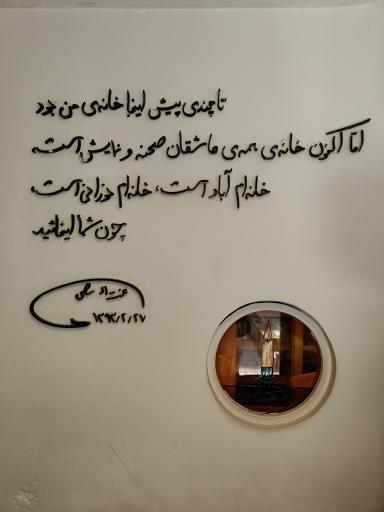 تا چندی پیش اینجا خانه‌ی من بود
امّا اکنون خانه‌ی همه‌ی عاشقان صحنه و نمایش است،
خانه‌ام آباد است، خانه‌ام نورانی است،
چون شما اینجائید.
عزت‌اله
۱۳۹۳/۲/۲۷